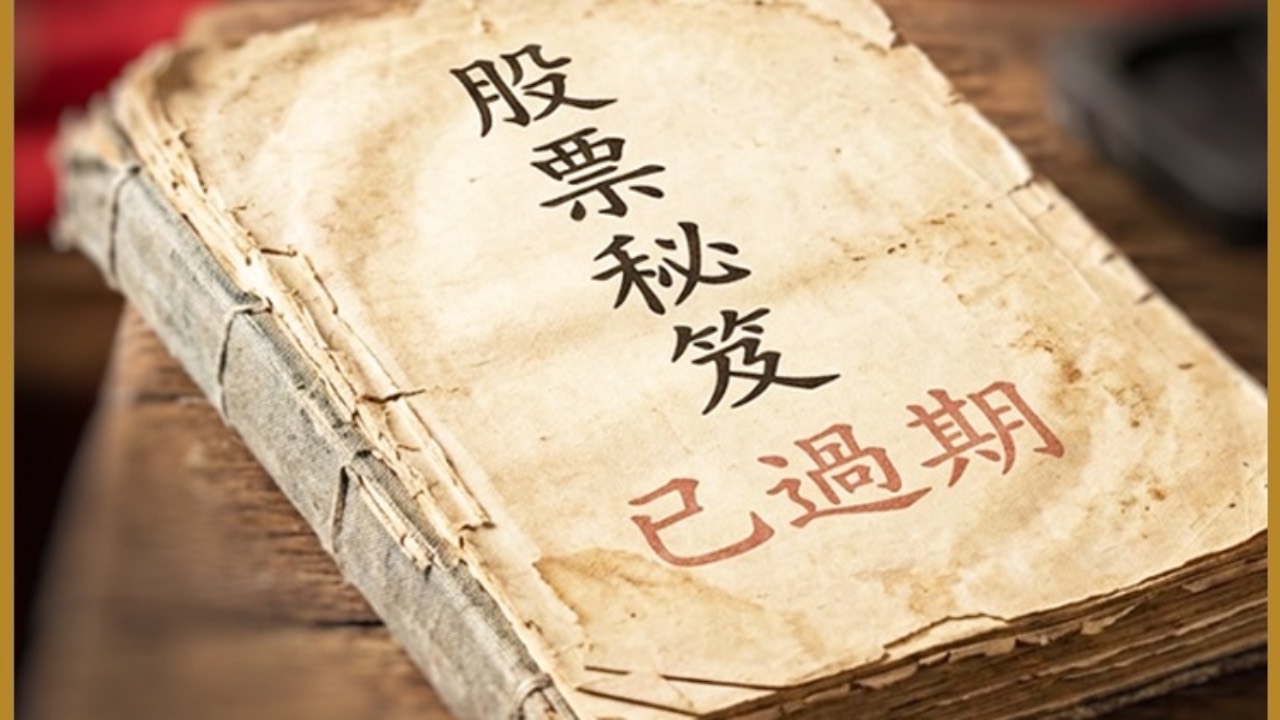 股票秘笈
已過期